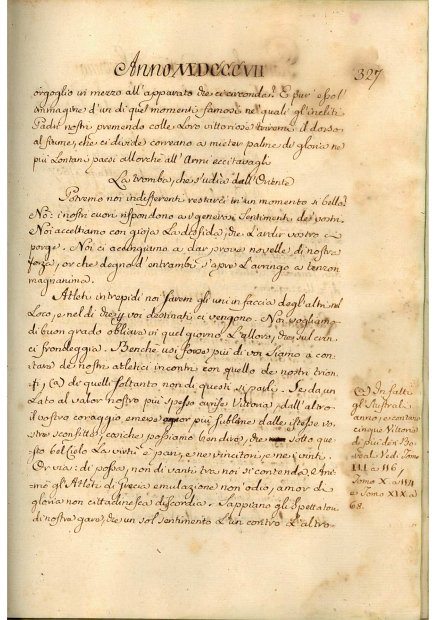 Anno MDCCCVII
327
orgoglio in mezzo all'apparato che ci circonda? E pur è sol
immagine d'un di quei momenti famosi ne' quali gl'incliti
Padri nostri premendo colle loro vittoriose triremi il dorso
al fiume, che ci divide correano a mieter palme di gloria ne'
più lontani paesi allorchè all'Armi eccitavagli
La tromba, che s'udia dall'Oriente
Potremo noi indifferenti restarci in un momento sì bello?
Nò: i nostri cuori rispondono a' generosi sentimenti de' vostri.
Noi accettiamo con gioja la disfida, che l'ardir vostro ci
porge. Noi ci accingiamo a dar prove novelle di nostra
forza, or che degno d'entrambi s'apre l'aringo a tenzon
magnanima.
Atleti intrepidi noi saremo gli uni in faccia degl'altri nel
Loco, e nel dì che voi destinati ci vengono. Noi vogliamo
di buon grado obliare in quel giorno l'alloro, che sul crin
ci frondeggia. Benche usi forse più di voi siamo a con
tare de' nostri atletici incontri con quello de' nostri trion
fi, (a) de' quelli soltanto non di questi si parli. Se da un
Lato al valor nostro più spesso arrise Vittoria, dall'altro
il vostro coraggio emerse più sublime dalle istesse vo
stre sconfitte, cosiche possiamo ben dire, che sotto que
sto bel Cielo la virtù è pari, e ne' vincitori, e ne' vinti.
Or via: di possa, non di vanti tra noi si contenda, e sre
mio gli Atleti di Grecia emulazione non odio, amor di
gloria non cittadinesca discordia. Sappiano gli Spettatori
di nostra gara, che un sol sentimento l'un contro l'altro
(a) In fatti
gl'Australi
anno
cinque Vittorie
di più dei Bo
reali Vedi Tomo
III a 116,
Tomo X a 114
e Tomo XIX a
68.